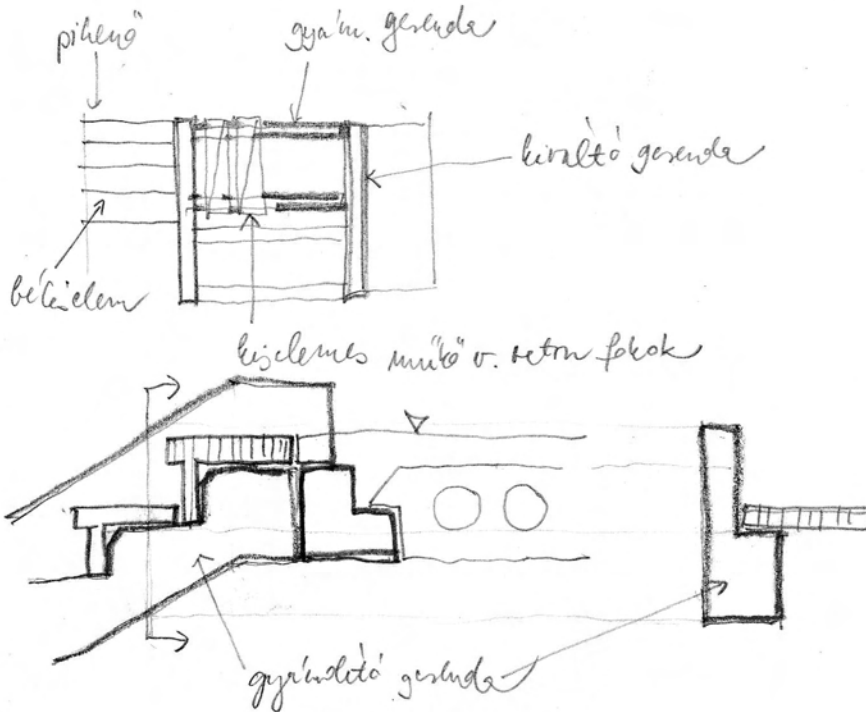 pihenő
gyám. gerenda
kiváltó gerenda
béléselem
kiselemes műkő v. beton fokok
gyámolító gerenda